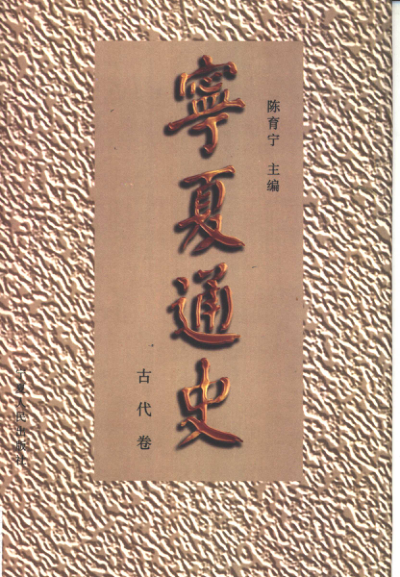 陈育宁 主编
寧夏通史
古代卷
宁夏人民出版社